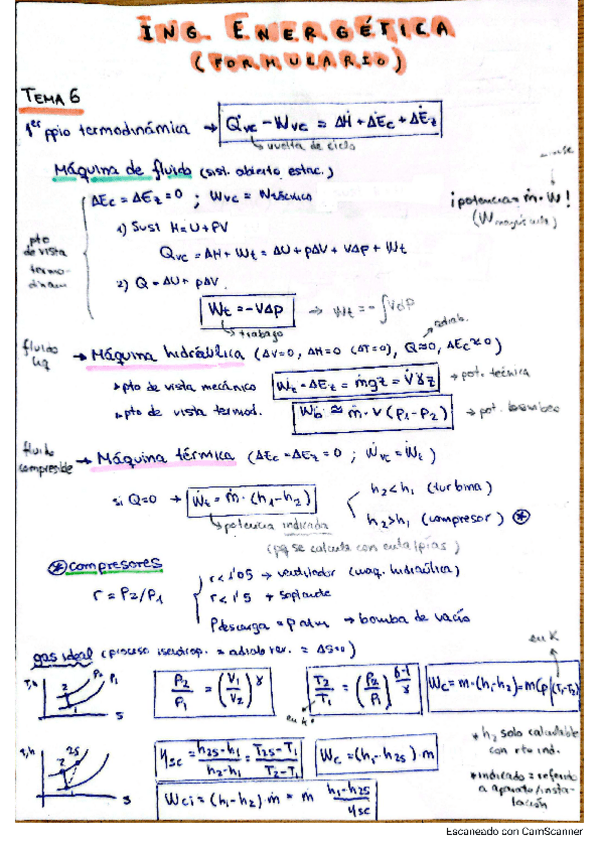 ING. ENERGÉTICA
(FORMULARIO)
TEMA 6
1er ppio termodinámica → Q̇vc - Ẇvc = ΔḢ + ΔĖc + ΔĖz
vuelta de ciclo
Máquina de fluido (sist. abierto estac.)
ΔEc = ΔEz = 0 ; Wvc = Wtécnico
¡potencia = ṁ · W!
(W mayúscula)
pto de vista termodinam
1) Sust H = U + PV
Qvc = ΔH + Wt = ΔU + pΔV + VΔp + Wt
2) Q = ΔU + pΔV.
Wt = -VΔp → Wt = -∫Vdp
trabajo
adiab.
fluido liq → Máquina hidráulica (ΔV=0, ΔH=0 (ΔT=0), Q≈0, ΔEc≈0)
→ pto de vista mecánico Ẇt = ΔEz = ṁgz = V̇γz → pot. técnica
→ pto de vista termod. Ẇb ≅ ṁ · v (p1-p2) → pot. bombeo
fluido compresible → Máquina térmica (ΔEc = ΔEz = 0 ; Ẇvc = Ẇt)
si Q=0 → Ẇt = ṁ · (h1-h2)
h2 < h1 (turbina)
h2 > h1 (compresor) *
potencia indicada
(pq se calcula con entalpías)
* compresores
r = P2/P1
r < 1'05 → ventilador (maq. hidráulica)
r < 1'5 → soplante
Pdescarga = Patm → bomba de vacío
gas ideal (proceso isentrop. = adiab rev. = ΔS=0)
en K
T,h P2 P1 2 1 S
P2/P1 = (V1/V2)^γ
T2/T1 = (P2/P1)^((γ-1)/γ)
Wc = ṁ · (h1-h2) = ṁCp(T1-T2)
en K
T,h 2S 2 1 S
ηsc = (h2s-h1)/(h2-h1) = (T2s-T1)/(T2-T1)
Wc = (h1-h2s) · ṁ
* h2 solo calculable con rto ind.
Wci = (h1-h2) · ṁ = ṁ (h1-h2s)/ηsc
* indicado = referido a aparato/instalación
Escaneado con CamScanner